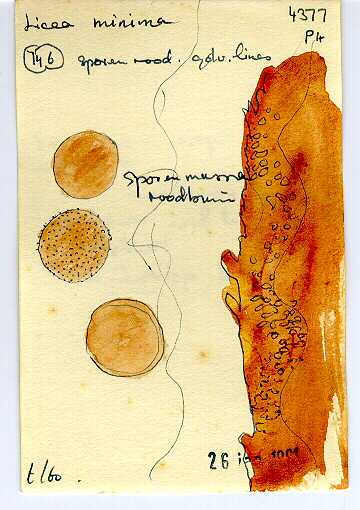 Licea minima
4377
P4
sporen rood.
lines
sporenmassa
roodbruin
26
t/60.